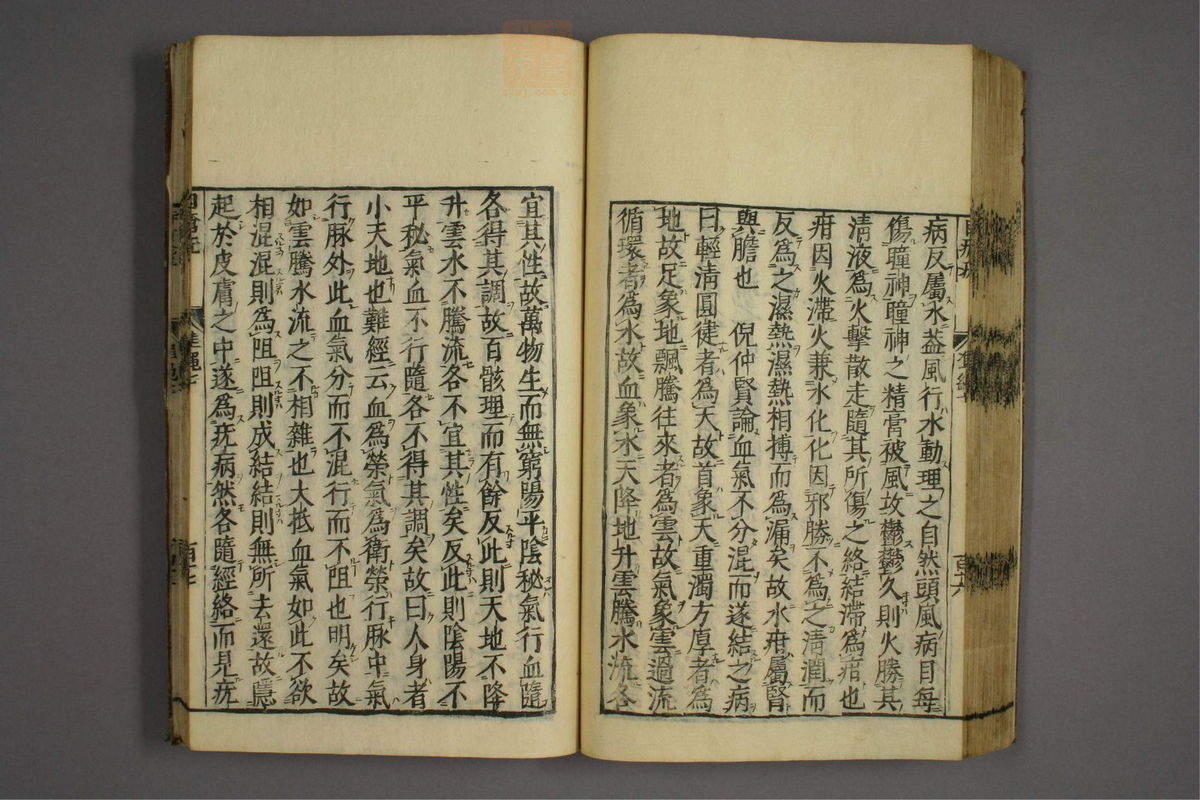 病反屬水蓋風行水動理之自然頭風病目每
傷瞳神瞳神之精膏被風攻鬱鬱久則火勝其
清液為火擊散走隨其所傷之絡結滯為疳也
疳因火滯火兼水化化因邪勝不為之清潤而
反為之濕熱濕熱相搏而為漏矣故水疳屬腎
與膽也 倪仲賢論血氣不分混而遂結之病
曰輕清圓健者為天故首象天重濁方厚者為
地故足象地飄騰往來者為雲故氣象雲過流
循環者為水故血象水天降地升雲騰水流各
宜其性故萬物生而無窮陽平陰秘氣行血隨
各得其調故百骸理而有餘反此則天地不降
升雲水不騰流各不宜其性矣反此則陰陽不
平秘氣血不行隨各不得其調矣故曰人身者
小天地也難經云血為榮氣為衛榮行脉中氣
行脉外此血氣分而不混行而不阻也明矣故
如雲騰水流之不相雜也大抵血氣如此不欲
相混混則為阻阻則成結結則無所去還故隱
起於皮膚之中遂為疣病然各隨經絡而見疣